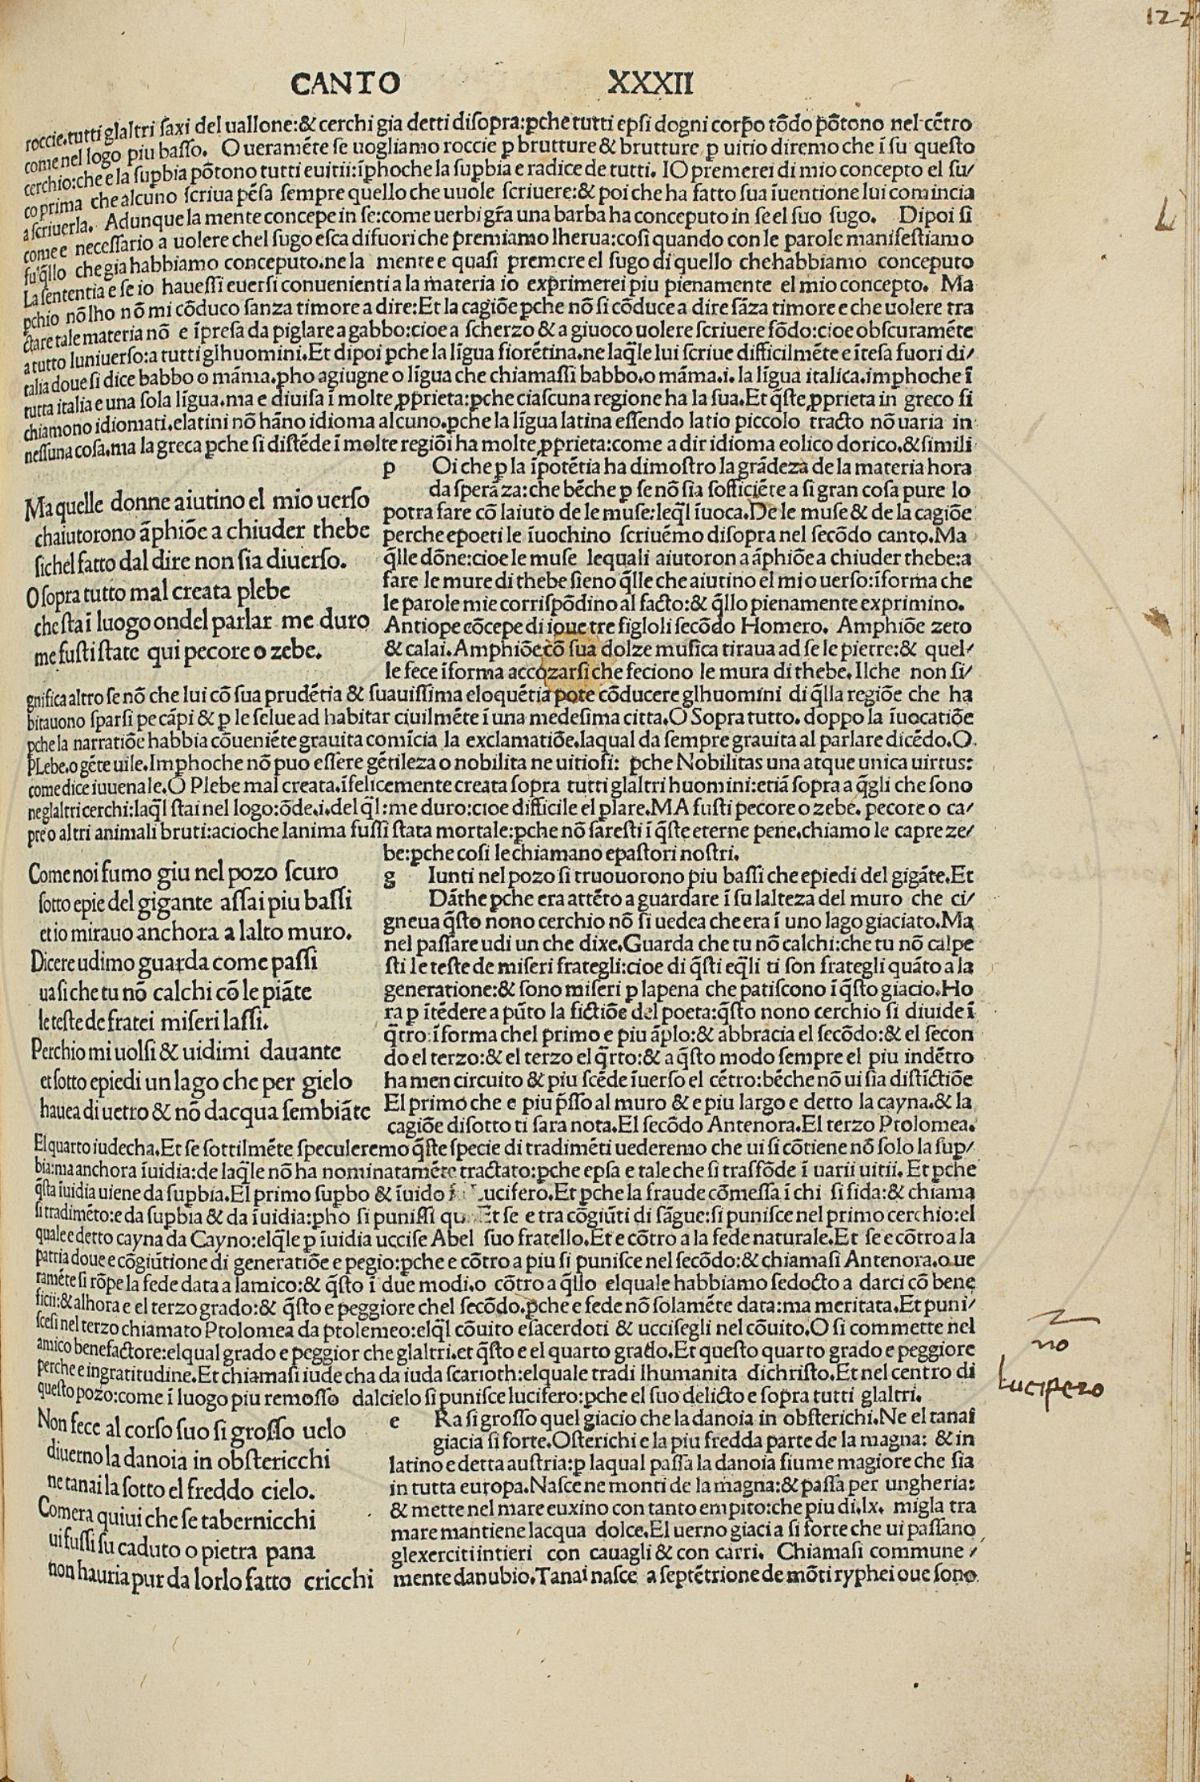 122
CANTO XXXII
roccie.tutti glaltri saxi del uallone:& cerchi gia detti disopra:ꝑche tutti epsi dogni corpo tōdo pōtono nel cētro
come nel logo piu basso. O ueramēte se uogliamo roccie ꝑ brutture & brutture ꝑ uitio diremo che ī su questo
cerchio:che e la supbia pōtono tutti euitii:īꝑhoche la supbia e radice de tutti. IO premerei di mio concepto el su/
co prima che alcuno scriua pēsa sempre quello che uuole scriuere:& poi che ha fatto sua īuentione lui comincia
a scriuerla. Adunque la mente concepe in se:come uerbi gr̄a una barba ha conceputo in se el suo sugo. Dipoi si
come e necessario a uolere chel sugo esca difuori che premiamo lherua:cosi quando con le parole manifestiamo
fu q̄llo che gia habbiamo conceputo.ne la mente e quasi premere el sugo di quello che habbiamo conceputo
La sententia e se io hauessi euersi conuenienti a la materia io exprimerei piu pienamente el mio concepto. Ma
ꝑchio nō lho nō mi cōduco sanza timore a dire:Et la cagiōe ꝑche nō si cōduce a dire sāza timore e che uolere tra
ctare tale materia nō e īpresa da piglare a gabbo:cioe a scherzo & a giuoco uolere scriuere fōdo:cioe obscuramēte
a tutto luniuerso:a tutti glhuomini.Et dipoi ꝑche la līgua fiorētina.ne laq̄le lui scriue difficilmēte e ītesa fuori di/
talia doue si dice babbo o māma.ꝑho agiugne o līgua che chiamassi babbo.o māma.i. la līgua italica.imphoche ī
tutta italia e una sola līgua.ma e diuisa ī molte ꝓprieta:ꝑche ciascuna regione ha la sua.Et q̄ste ꝓprieta in greco si
chiamono idiomati.elatini nō hāno idioma alcuno.ꝑche la līgua latina essendo latio piccolo tracto nō uaria in
nessuna cosa.ma la greca ꝑche si distēde ī molte regiōi ha molte ꝓprieta:come a dir idioma eolico dorico.& simili
Ma quelle donne aiutino el mio uerso
chaiutorono āphiōe a chiuder thebe
sichel fatto dal dire non sia diuerso.
O sopra tutto mal creata plebe
che sta ī luogo ondel parlar me duro
me fusti state qui pecore o zebe.
p Oi che ꝑ la īpotētia ha dimostro la grādeza de la materia hora
da sperāza:che bēche ꝑ se nō sia sofficiēte a si gran cosa pure lo
potra fare cō laiuto de le muse:leq̄l īuoca.De le muse & de la cagiōe
perche epoeti le iuochino scriuēmo disopra nel secōdo canto.Ma
q̄lle dōne:cioe le muse lequali aiutoron a āphiōe a chiuder thebe:a
fare le mure di thebe sieno q̄lle che aiutino el mio uerso:īforma che
le parole mie corrispōdino al facto:& q̄llo pienamente exprimino.
Antiope cōcepe di ioue tre figloli secōdo Homero. Amphiōe zeto
& calai. Amphiōe cō sua dolze musica tiraua ad se le pietre:& quel/
le fece īforma accozarsi che feciono le mura di thebe.Ilche non si/
gnifica altro se nō che lui cō sua prudētia & suauissima eloquētia pote cōducere glhuomini di q̄lla regiōe che ha
bitauono sparsi pe cāpi & ꝑ le selue ad habitar ciuilmēte ī una medesima citta.O Sopra tutto. doppo la īuocatiōe
ꝑche la narratiōe habbia cōueniēte grauita comīcia la exclamatiōe.laqual da sempre grauita al parlare dicēdo.O
pLebe.o gēte uile.Imphoche nō puo essere gētileza o nobilita ne uitiosi: ꝑche Nobilitas una atque unica uirtus:
come dice iuuenale.O Plebe mal creata.īfelicemente creata sopra tutti glaltri huomini:etiā sopra a q̄gli che sono
ne glaltri cerchi:laq̄l stai nel logo:ōde.i.del q̄l:me duro:cioe difficile el ꝑlare.MA fusti pecore o zebe. pecore o ca/
pre o altri animali bruti:acioche lanima fussi stata mortale:ꝑche nō saresti ī q̄ste eterne pene.chiamo le capre ze/
be:ꝑche cosi le chiamano epastori nostri.
Come noi fumo giu nel pozo scuro
sotto epie del gigante assai piu bassi
et io mirauo anchora a lalto muro.
Dicere udimo guarda come passi
ua si che tu nō calchi cō le piāte
le teste de fratei miseri lassi.
Perchio mi uolsi & uidimi dauante
et sotto epiedi un lago che per gielo
hauea di uetro & nō dacqua sembiāte
g Iunti nel pozo si truouorono piu bassi che epiedi del gigāte.Et
Dāthe ꝑche era attēto a guardare ī su lalteza del muro che ci/
gneua q̄sto nono cerchio nō si uedea che era ī uno lago giaciato.Ma
nel passare udi un che dixe.Guarda che tu nō calchi:che tu nō calpe
sti le teste de miseri frategli:cioe di q̄sti eq̄li ti son frategli quāto a la
generatione:& sono miseri ꝑ lapena che patiscono ī q̄sto giacio.Ho
ra ꝑ itēdere a pūto la fictiōe del poeta:q̄sto nono cerchio si diuide ī
q̄tro:īforma chel primo e piu āplo:& abbracia el secōdo:& el secon
do el terzo:& el terzo el q̄rto:& a q̄sto modo sempre el piu indētro
ha men circuito & piu scēde īuerso el cētro:bēche nō ui sia distīctiōe
El primo che e piu ꝑsso al muro & e piu largo e detto la cayna.& la
cagiōe disotto ti sara nota.El secōdo Antenora.El terzo Ptolomea.
El quarto iudecha.Et se sottilmēte speculeremo q̄ste specie di tradimēti uederemo che ui si cōtiene nō solo la sup/
bia:ma anchora īuidia:de laq̄le nō ha nominatamēte tractato:ꝑche epsa e tale che si trasfōde ī uarii uitii. Et ꝑche
q̄sta īuidia uiene da supbia.El primo supbo & īuido Lucifero.Et ꝑche la fraude cōmessa ī chi si fida:& chiama
si tradimēto:e da supbia & da īuidia:ꝑho si punissi Et se e tra cōgiūti di sāgue:si punisce nel primo cerchio:el
quale e detto cayna da Cayno:elq̄le ꝑ īuidia uccise Abel suo fratello.Et e cōtro a la fede naturale.Et se e cōtro a la
patria doue e cōgiūtione di generatiōe e pegio:ꝑche e cōtro a piu si punisce nel secōdo:& chiamasi Antenora.o ue
ramēte si rōpe la fede data a lamico:& q̄sto ī due modi.o cōtro a q̄llo elquale habbiamo sedocto a darci cō bene
ficii:& alhora e el terzo grado:& q̄sto e peggiore chel secōdo.ꝑche e fede nō solamēte data:ma meritata.Et puni/
scesi nel terzo chiamato Ptolomea da ptolemeo:elq̄l cōuito esacerdoti & uccisegli nel cōuito.O si commette nel
amico benefactore:elqual grado e peggior che glaltri.et q̄sto e el quarto grado.Et questo quarto grado e peggiore
perche e ingratitudine.Et chiamasi iudecha da iuda scarioth:elquale tradi lhumanita dichristo.Et nel centro di
questo pozo:come ī luogo piu remosso dalcielo si punisce lucifero:ꝑche el suo delicto e sopra tutti glaltri.
no
Lucifero
Non fece al corso suo si grosso uelo
diuerno la danoia in obstericchi
ne tanai la sotto el freddo cielo.
Comera quiui che se tabernicchi
ui fussi su caduto o pietra pana
non hauria pur da lorlo fatto cricchi
e Ra si grosso quel giacio che la danoia in obsterichi.Ne el tanai
giacia si forte.Osterichi e la piu fredda parte de la magna: & in
latino e detta austria:ꝑ laqual passa la danoia fiume magiore che sia
in tutta europa.Nasce ne monti de la magna:& passa per ungheria:
& mette nel mare euxino con tanto empito:che piu di.lx. migla tra
mare mantiene lacqua dolce.El uerno giaci a si forte che ui passano
glexerciti intieri con cauagli & con carri. Chiamasi commune/
mente danubio.Tanai nasce a septētrione de mōti ryphei oue sono